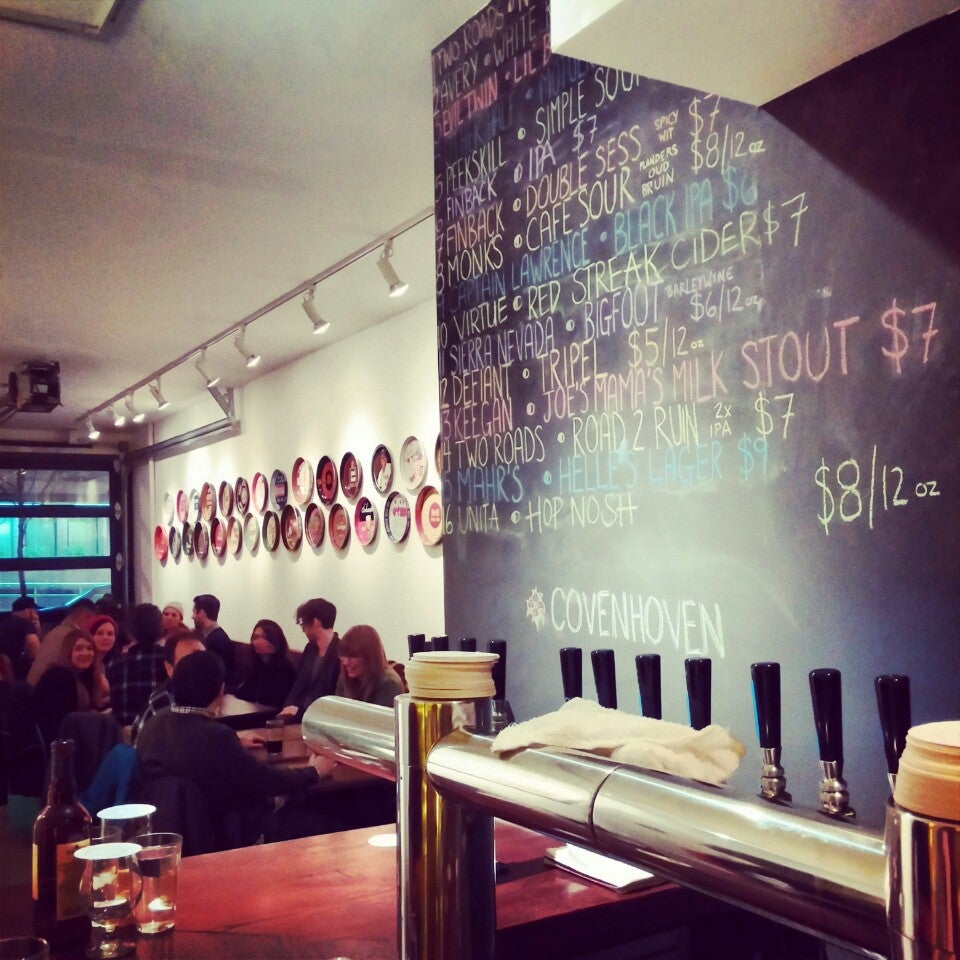 TWO ROADS
AVERY • WHITE
EVIL TWIN • LIL B
5 PEEKSKILL • SIMPLE SOUR
6 FINBACK • IPA $7
7 FINBACK • DOUBLE SESS SPICY WIT $7
8 MONKS • CAFÉ SOUR FLANDERS OUD BRUIN $8/12 oz
9 CAPTAIN LAWRENCE • BLACK IPA $6
10 VIRTUE • RED STREAK CIDER $7
11 SIERRA NEVADA • BIGFOOT BARLEYWINE $6/12 oz
2 DEFIANT • TRIPEL $5/12 oz
3 KEEGAN • JOE'S MAMA'S MILK STOUT $7
4 TWO ROADS • ROAD 2 RUIN 2x IPA $7
5 MAHR'S • HELLE'S LAGER $9
6 UNITA • HOP NOSH $8/12 oz
COVENHOVEN